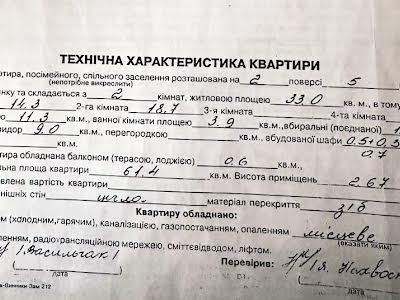 ТЕХНІЧНА ХАРАКТЕРИСТИКА КВАРТИРИ
ртира, посімейного, спільного заселення розташована на 2 поверсі 5
(непотрібне викреслити)
инку та складається з 2 кімнат, житловою площею 33.0 кв. м., в тому
14,3 2-га кімната 18,7 3-я кімната 4-та кімната
ю 11.3 кв. м., ванної кімнати площею 3.9 кв. м., вбиральні (поєднаної)
идор 9.0 кв. м., перегородкою кв. м., вбудованої шафи 0.5+0.3
кв.м. 0.7
ртира обладнана балконом (терасою, лоджією) 0,6 кв. м.,
льна площа квартири 61.4 кв. м. Висота приміщень 2.67
влена вартість квартири
внішніх стін матеріал перекриття з/б
Квартиру обладнано:
ом (холодним,гарячим), каналізацією, газопостачанням, опаленням місцеве
(вказати яким)
ленням, радіотрансляційною мережею, сміттєвідводом, ліфтом.
Перевірив:
дата дата
а-Винники Зам 212